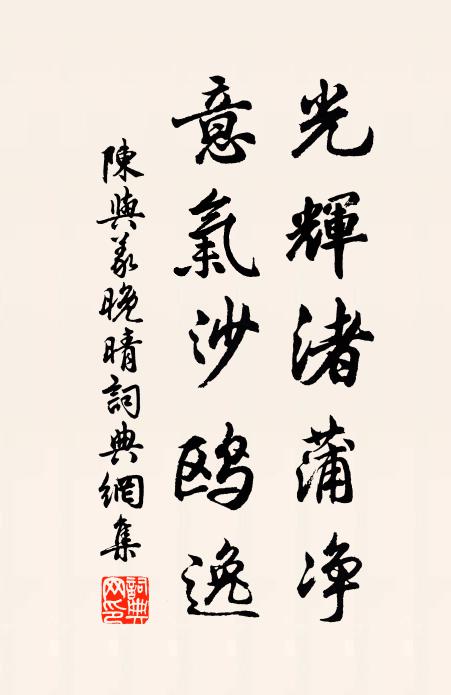 光輝渚蒲净
意氣沙鸥逸
陳與義晚晴詞典網集
詞典網印